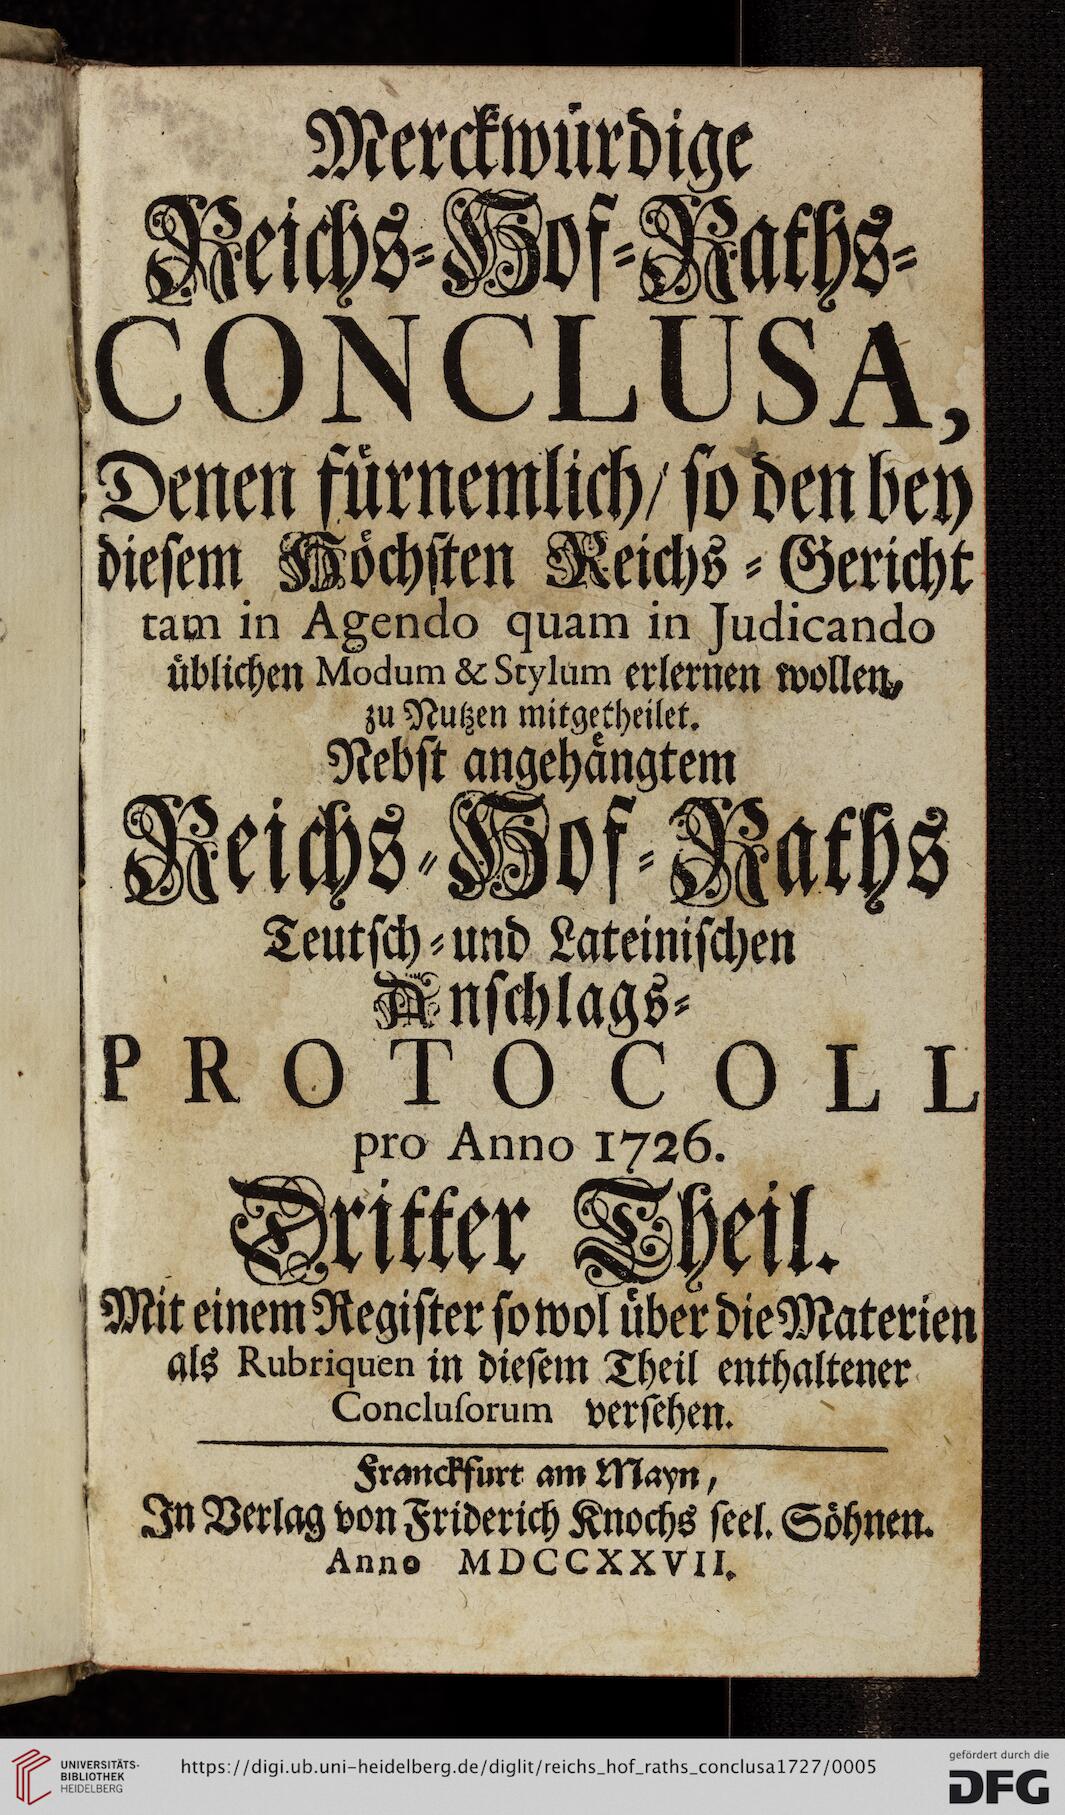 Merckwürdige
Reichs-Hof-Raths-
CONCLUSA,
Denen fürnemlich/ so den bey
diesem Höchsten Reichs-Gericht
tam in Agendo quam in Judicando
üblichen Modum & Stylum erlernen wollen,
zu Nutzen mitgetheilet.
Nebst angehängtem
Reichs-Hof-Raths
Teutsch-und Lateinischen
Anschlags-
PROTOCOLL
pro Anno 1726.
Dritter Theil.
Mit einem Register sowol über die Materien
als Rubriquen in diesem Theil enthaltener
Concluſorum versehen.
Franckfurt am Mayn,
In Verlag von Friderich Knochs seel. Söhnen.
Anno MDCCXXVII.
UNIVERSITÄTS-
BIBLIOTHEK
HEIDELBERG
https://digi.ub.uni-heidelberg.de/diglit/reichs_hof_raths_conclusa1727/0005
gefördert durch die
DFG